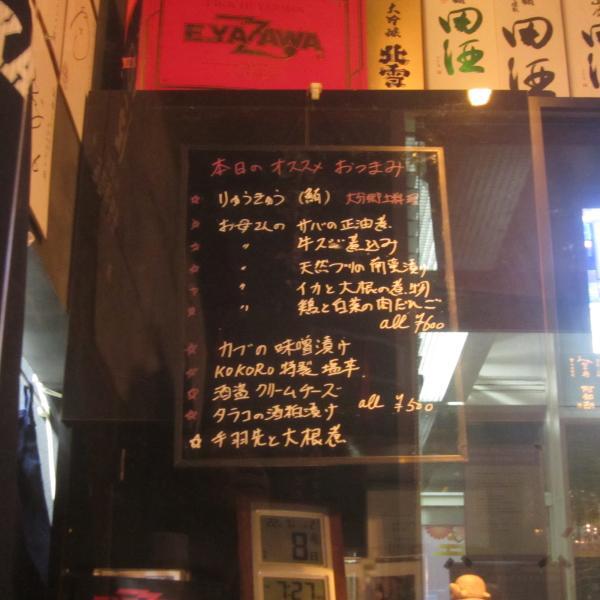 E.YAZAWA
大吟醸 北雪
田酒
田酒
本日のオススメ おつまみ
☆ りゅうきゅう (鮪) 大分郷土料理
☆ お母さんの サバの正油煮
☆ 〃 牛スジ煮込み
☆ 〃 天然ブリの南蛮漬け
☆ 〃 イカと大根の煮物
☆ 〃 鶏と白菜の肉だんご
all ¥600
☆ カブの味噌漬け
☆ KOKORO特製 塩辛
☆ 酒盗クリームチーズ
☆ タラコの酒粕漬け all ¥500
☆ 手羽先と大根煮
8
7:27